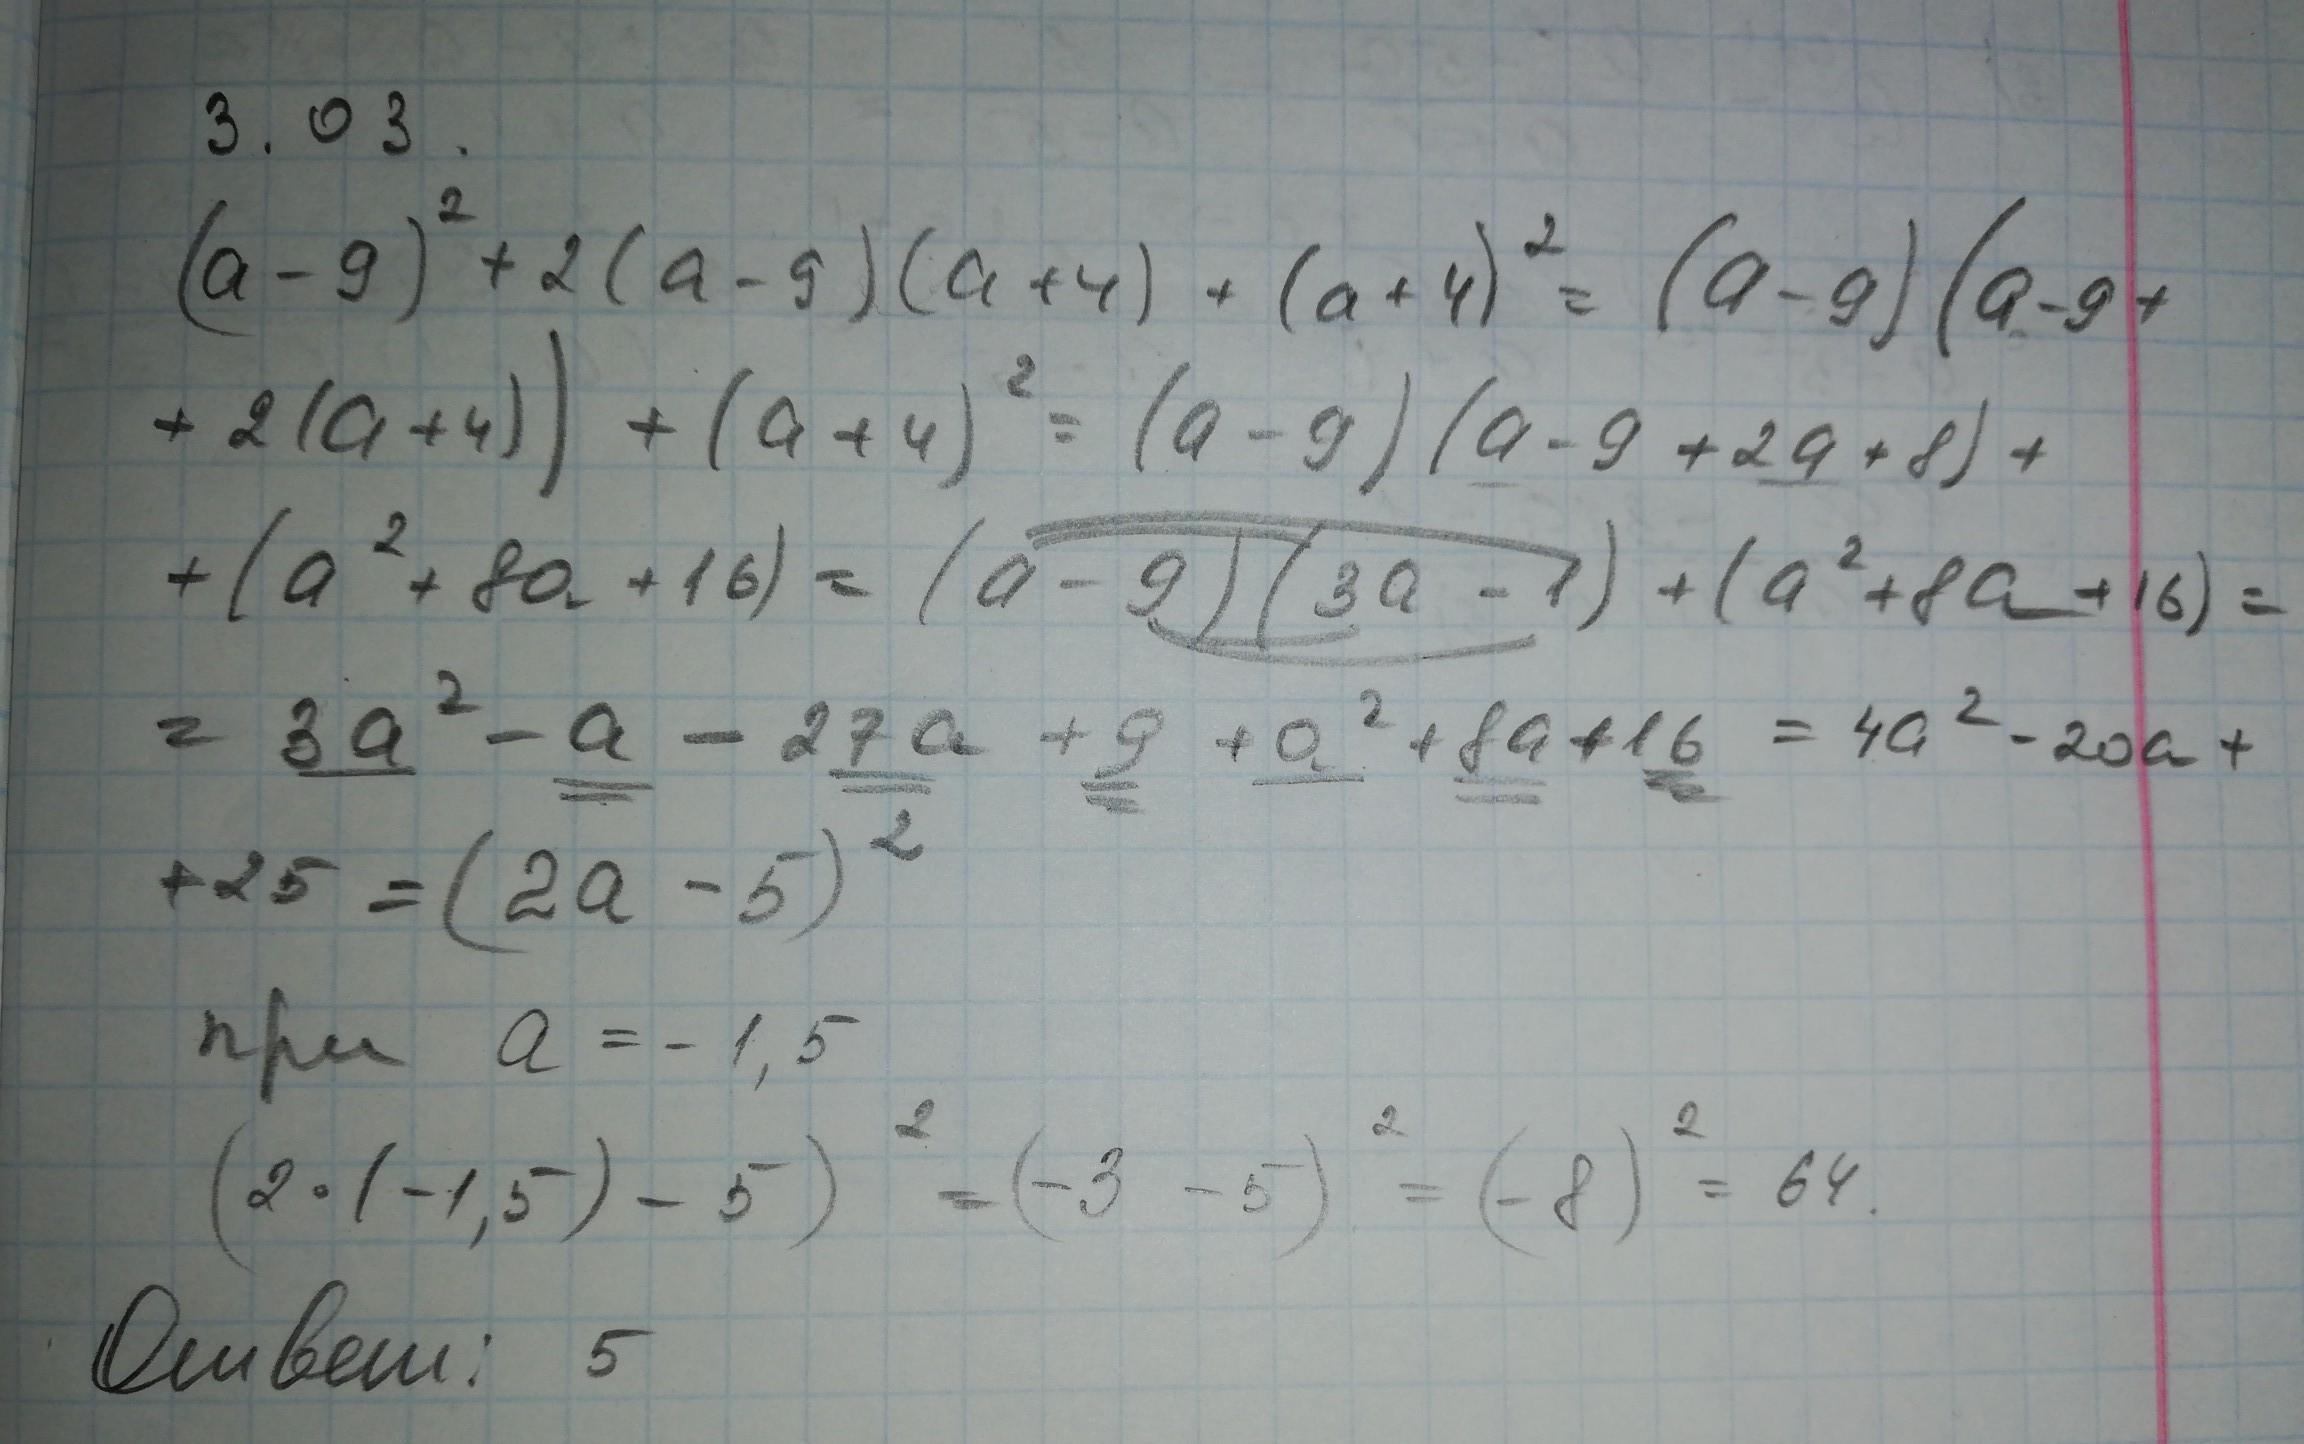 3.03.
(a-9)²+2(a-9)(a+4)+(a+4)²=(a-9)(a-9+
+2(a+4))+(a+4)²=(a-9)(a-9+2a+8)+
+(a²+8a+16)=(a-9)(3a-1)+(a²+8a+16)=
=3a²-a-27a+9+a²+8a+16=4a²-20a+
+25=(2a-5)²
при a=-1,5
(2·(-1,5)-5)²=(-3-5)²=(-8)²=64.
Ответ: 5